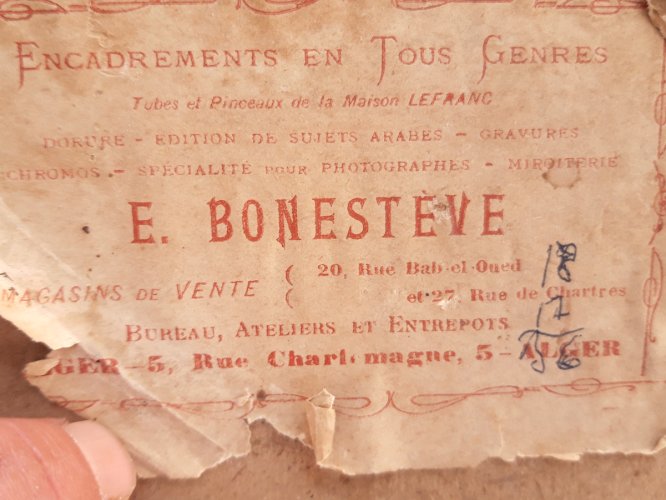 ENCADREMENTS EN TOUS GENRES
Tubes et Pinceaux de la Maison LEFRANC
DORURE - EDITION DE SUJETS ARABES - GRAVURES
CHROMOS. - SPÉCIALITÉ POUR PHOTOGRAPHES - MIROITERIE
E. BONESTÈVE
MAGASINS DE VENTE ( 20, Rue Bab-el-Oued
( et 27, Rue de Chartres
BUREAU, ATELIERS ET ENTREPOTS
ALGER—5, Rue Charlemagne, 5—ALGER
18